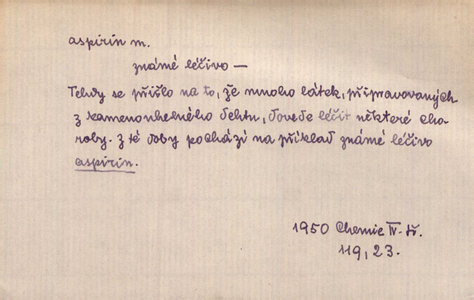 aspirin m.
známé léčivo —
Tehdy se přišlo na to, že mnoho látek, připravovaných
z kamenouhelného dehtu, dovede léčit některé cho-
roby. Z té doby pochází na příklad známé léčivo
aspirin.
1950 Chemie IV. tř.
119, 23.